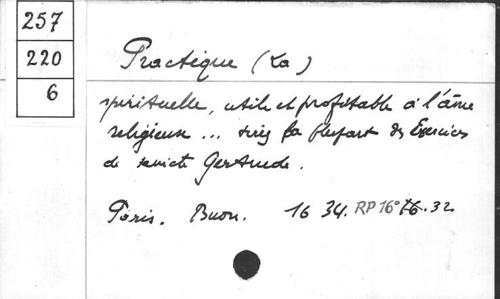 257
220
6
Practique (La)
spirituelle, utile et profitable à l'âme
religieuse ... la plupart des Exercices
de saincte Gertrude.
Paris. Buon. 1634. RP 16° 16.32